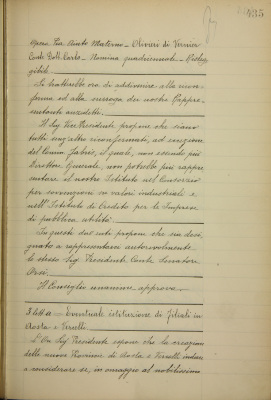 435
Opera Pia Aiuto Materno - Olivieri di Vernier
Conte Dott. Carlo - Nomina quadriennale - Rieleg-
gibile.
Si tratterebbe ora di addivenire alla ricon-
ferma od alla surroga dei nostri Rappre-
sentanti anzidetti.
Il Sig. Vice Presidente propone che siano
tutti senz'altro riconfermati, ad eccezione
del Comm. Jabris, il quale, non essendo più
Direttore Generale, non potrebbe più rappre-
sentare il nostro Istituto nel Consorzio
per sovvenzioni su valori industriali e
nell'Istituto di Credito per le Imprese
di pubblica utilità.
In questi due enti propone che sia desi-
gnato a rappresentarci autorevolmente
lo stesso Sig. Presidente Conte Senatore
Il Consiglio unanime approva.
Eventuale istituzione di Filiali in
Aosta e Vercelli.
L'On. Sig. Presidente espone che la creazione
delle nuove Provincie di Aosta e Vercelli induce
a considerare se, in omaggio al nobilissimo